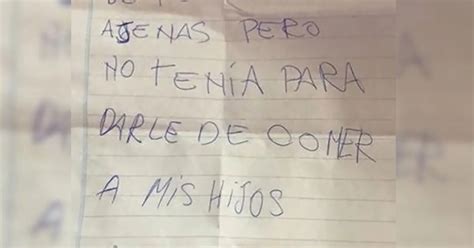 AJENAS PERO
NO TENIA PARA
DARLE DE COMER
A MIS HIJOS